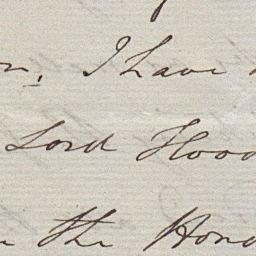 I have
Lord Hood
the Hono